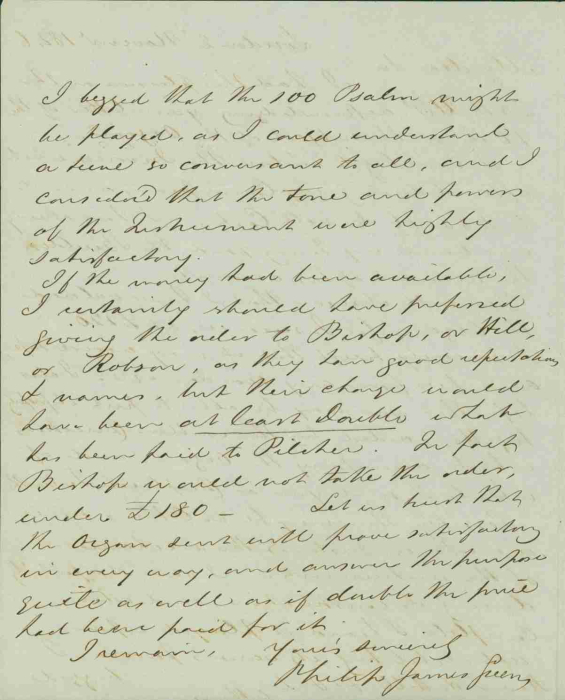 I begged that the 100 Psalm might
be played, as I could understand
a tune so conversant to all, and I
consider'd that the tone and powers
of the Instrument were highly
satisfactory.
If the money had been available,
I certainly should have preferred
giving the order to Bishop, or Hill,
or Robson, as they have good reputations
& names, but their charge would
have been at least double what
has been paid to Pilcher. In fact
Bishop would not take the order,
under £180 - Let us trust that
the Organ sent will prove satisfactory
in every way, and answer the purpose
quite as well as if double the price
had been paid for it.
I remain, Your's sincerely
Philip James Green